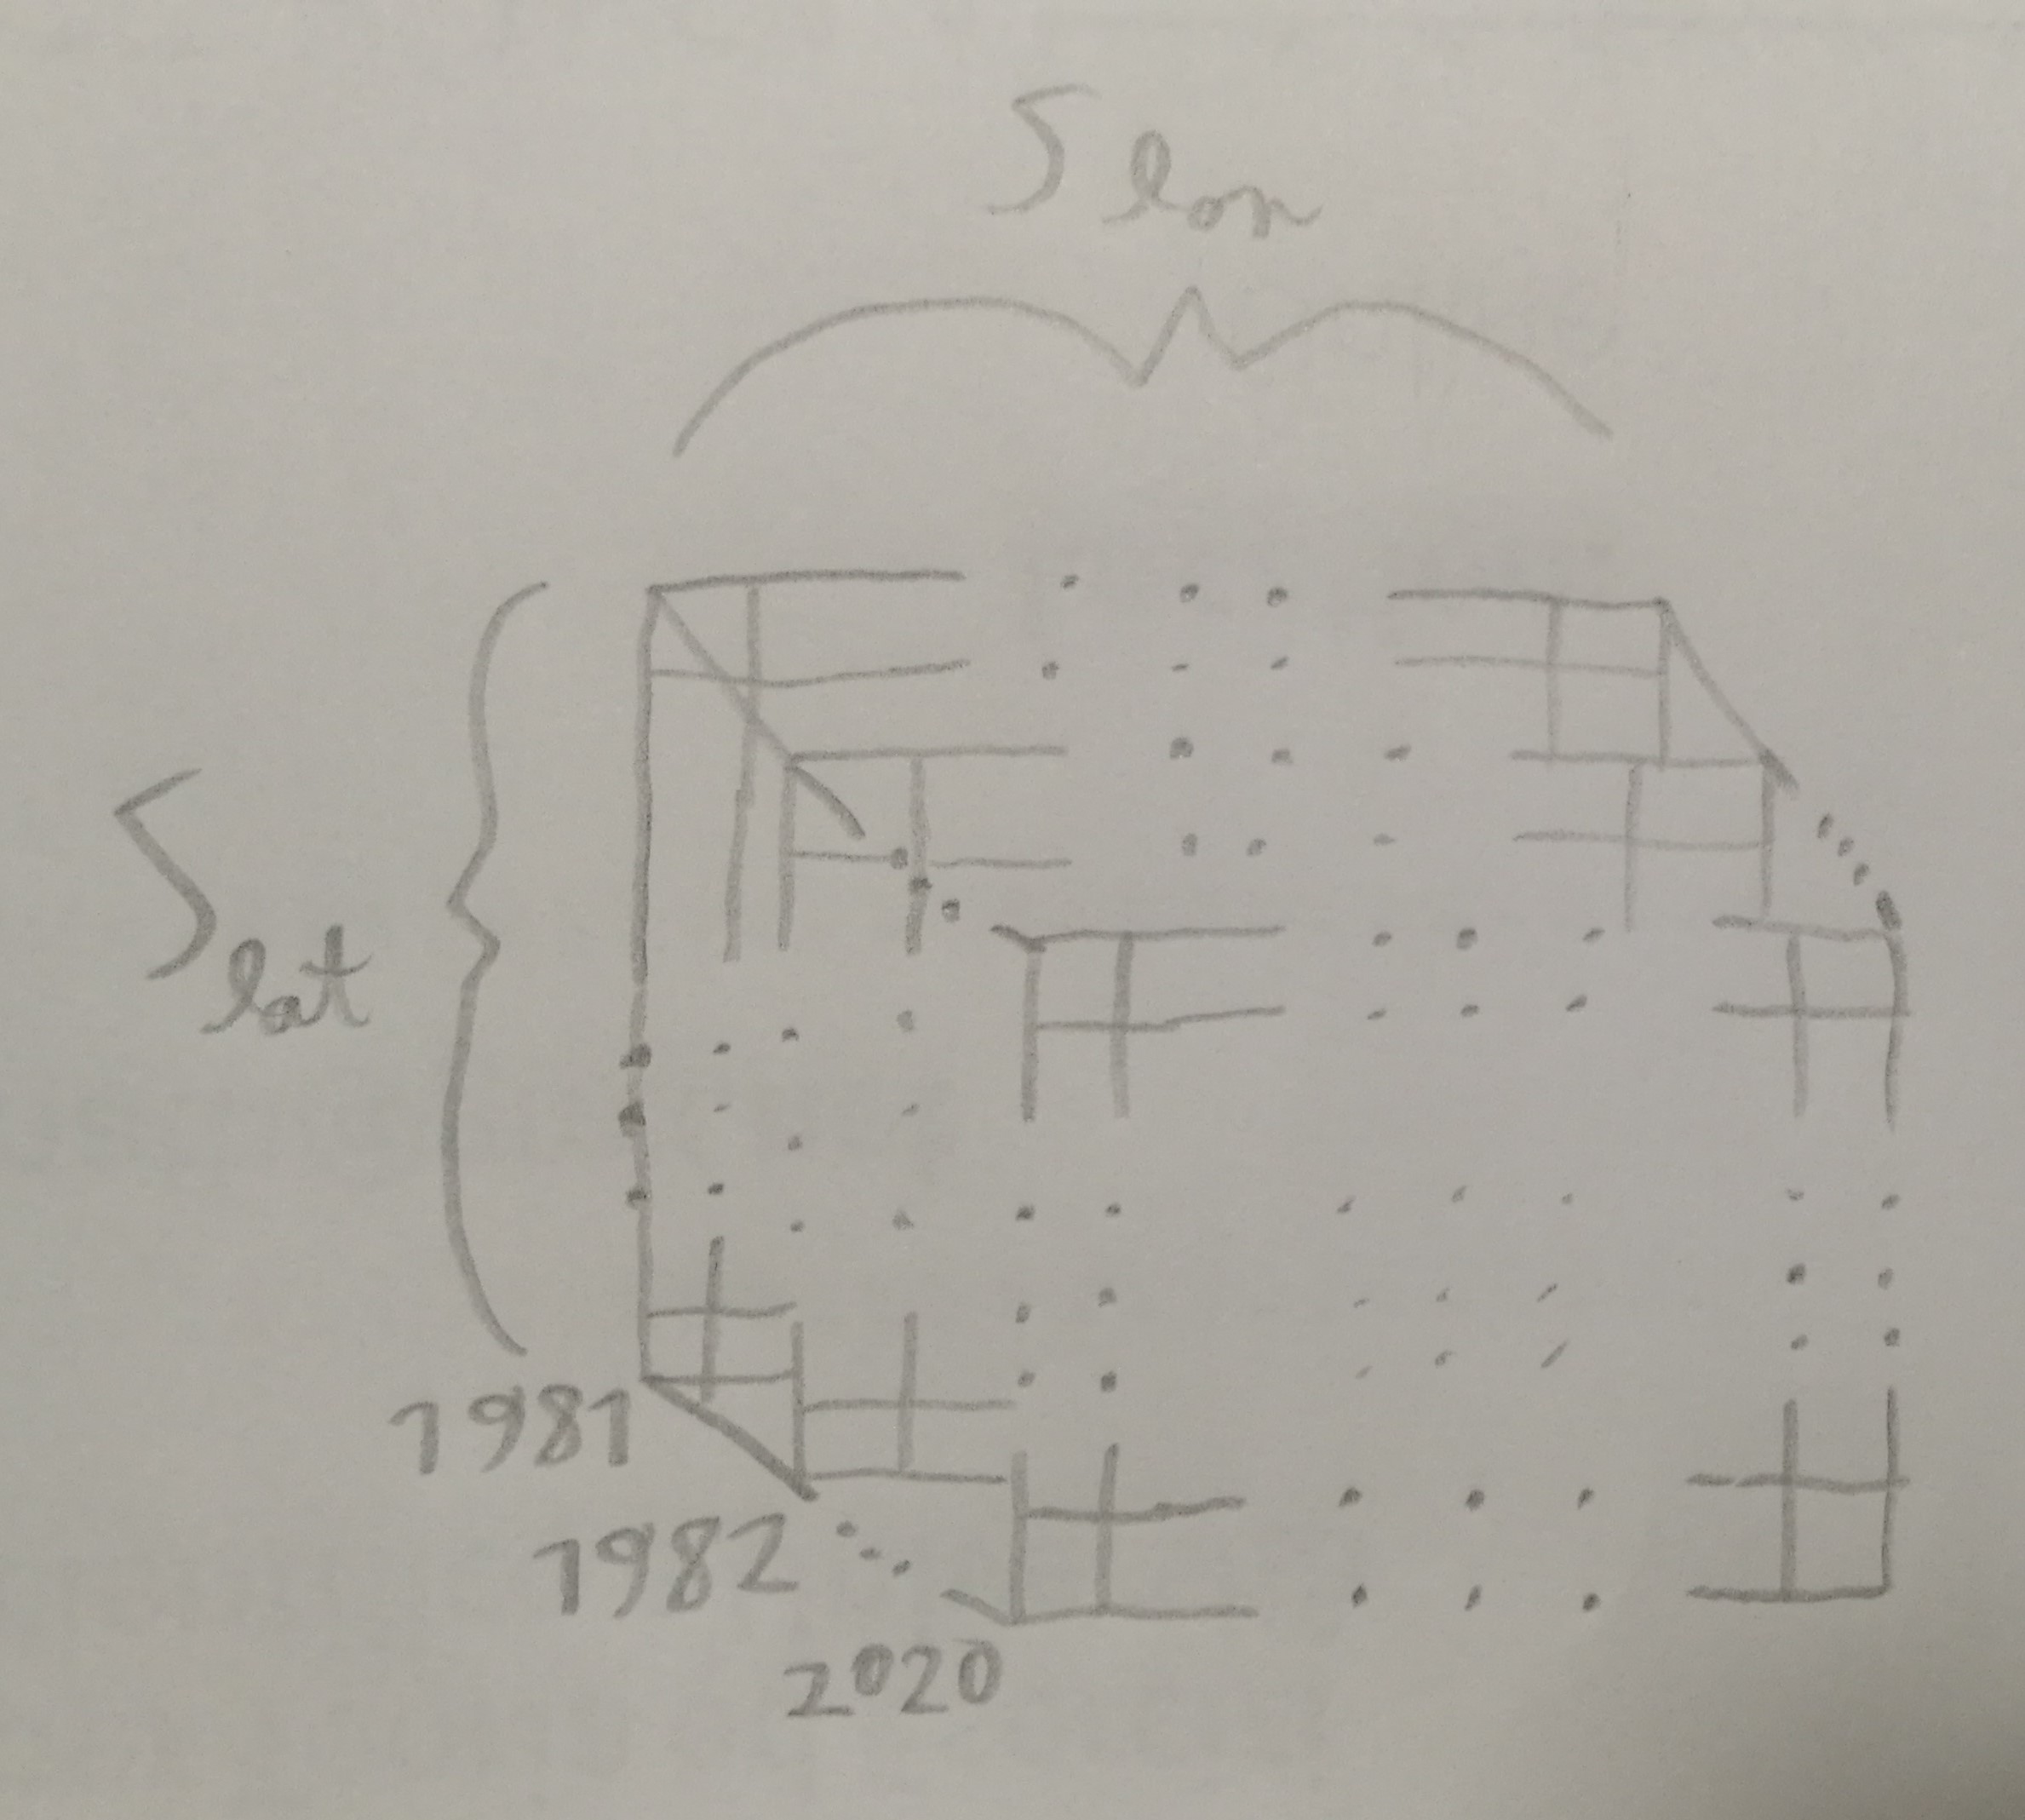 S lon
S lat
1981
1982
2020